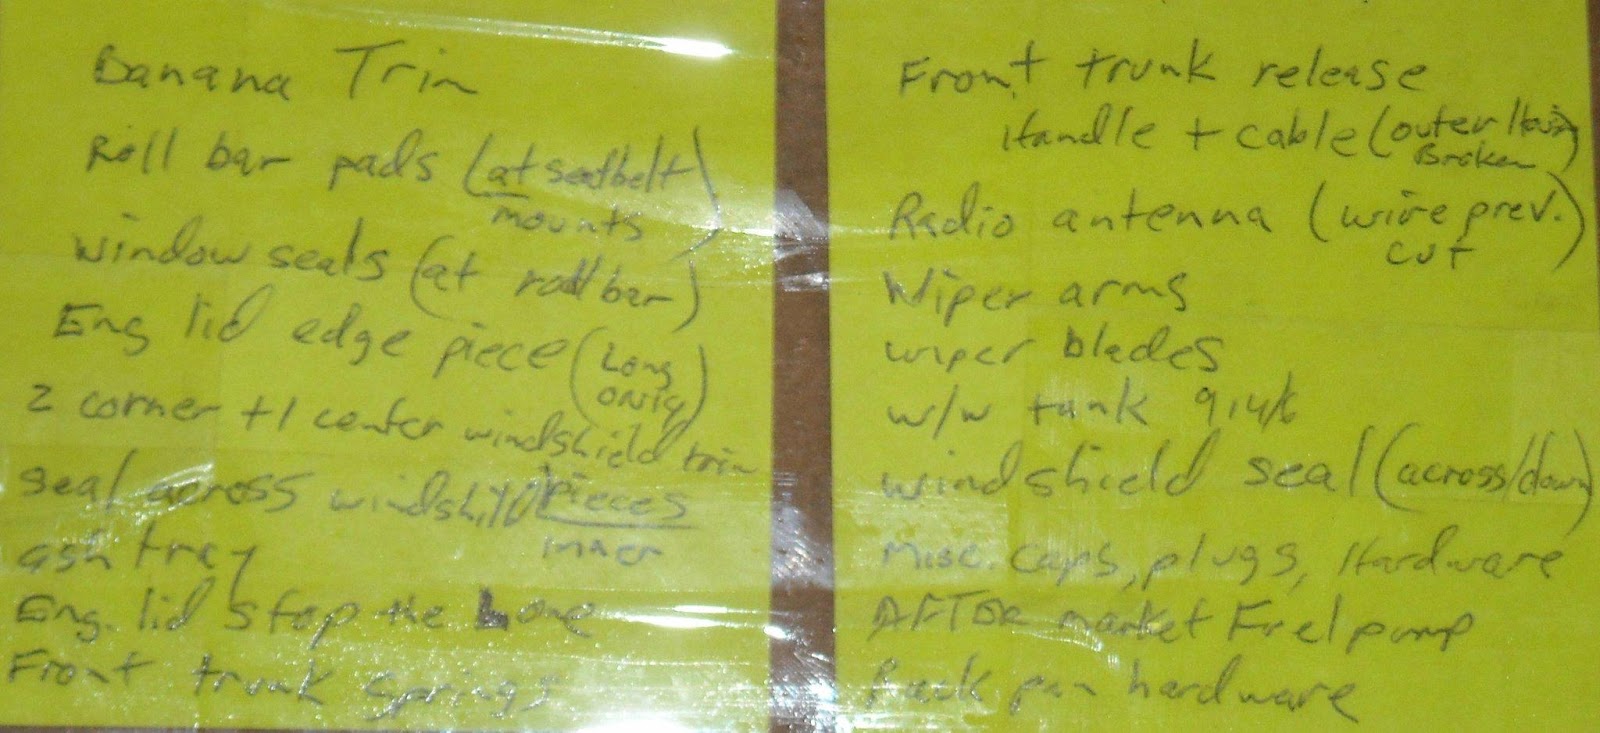 Banana Trim
Roll bar pads (at seatbelt
mounts)
window seals (at roll bar)
Eng lid edge piece (Long
ONLY)
2 corner +1 center windshield trim
pieces
seal across windshield
inner
ash tray
Eng. lid stop the Long
Front trunk springs
Front trunk release
Handle + cable (outer
Broken)
Radio antenna (wire prev.
cut)
Wiper arms
wiper blades
w/w tank 914/6
windshield seal (across/down)
Misc. caps, plugs, Hardware
AFTER market Fuel pump
Rack pan hardware